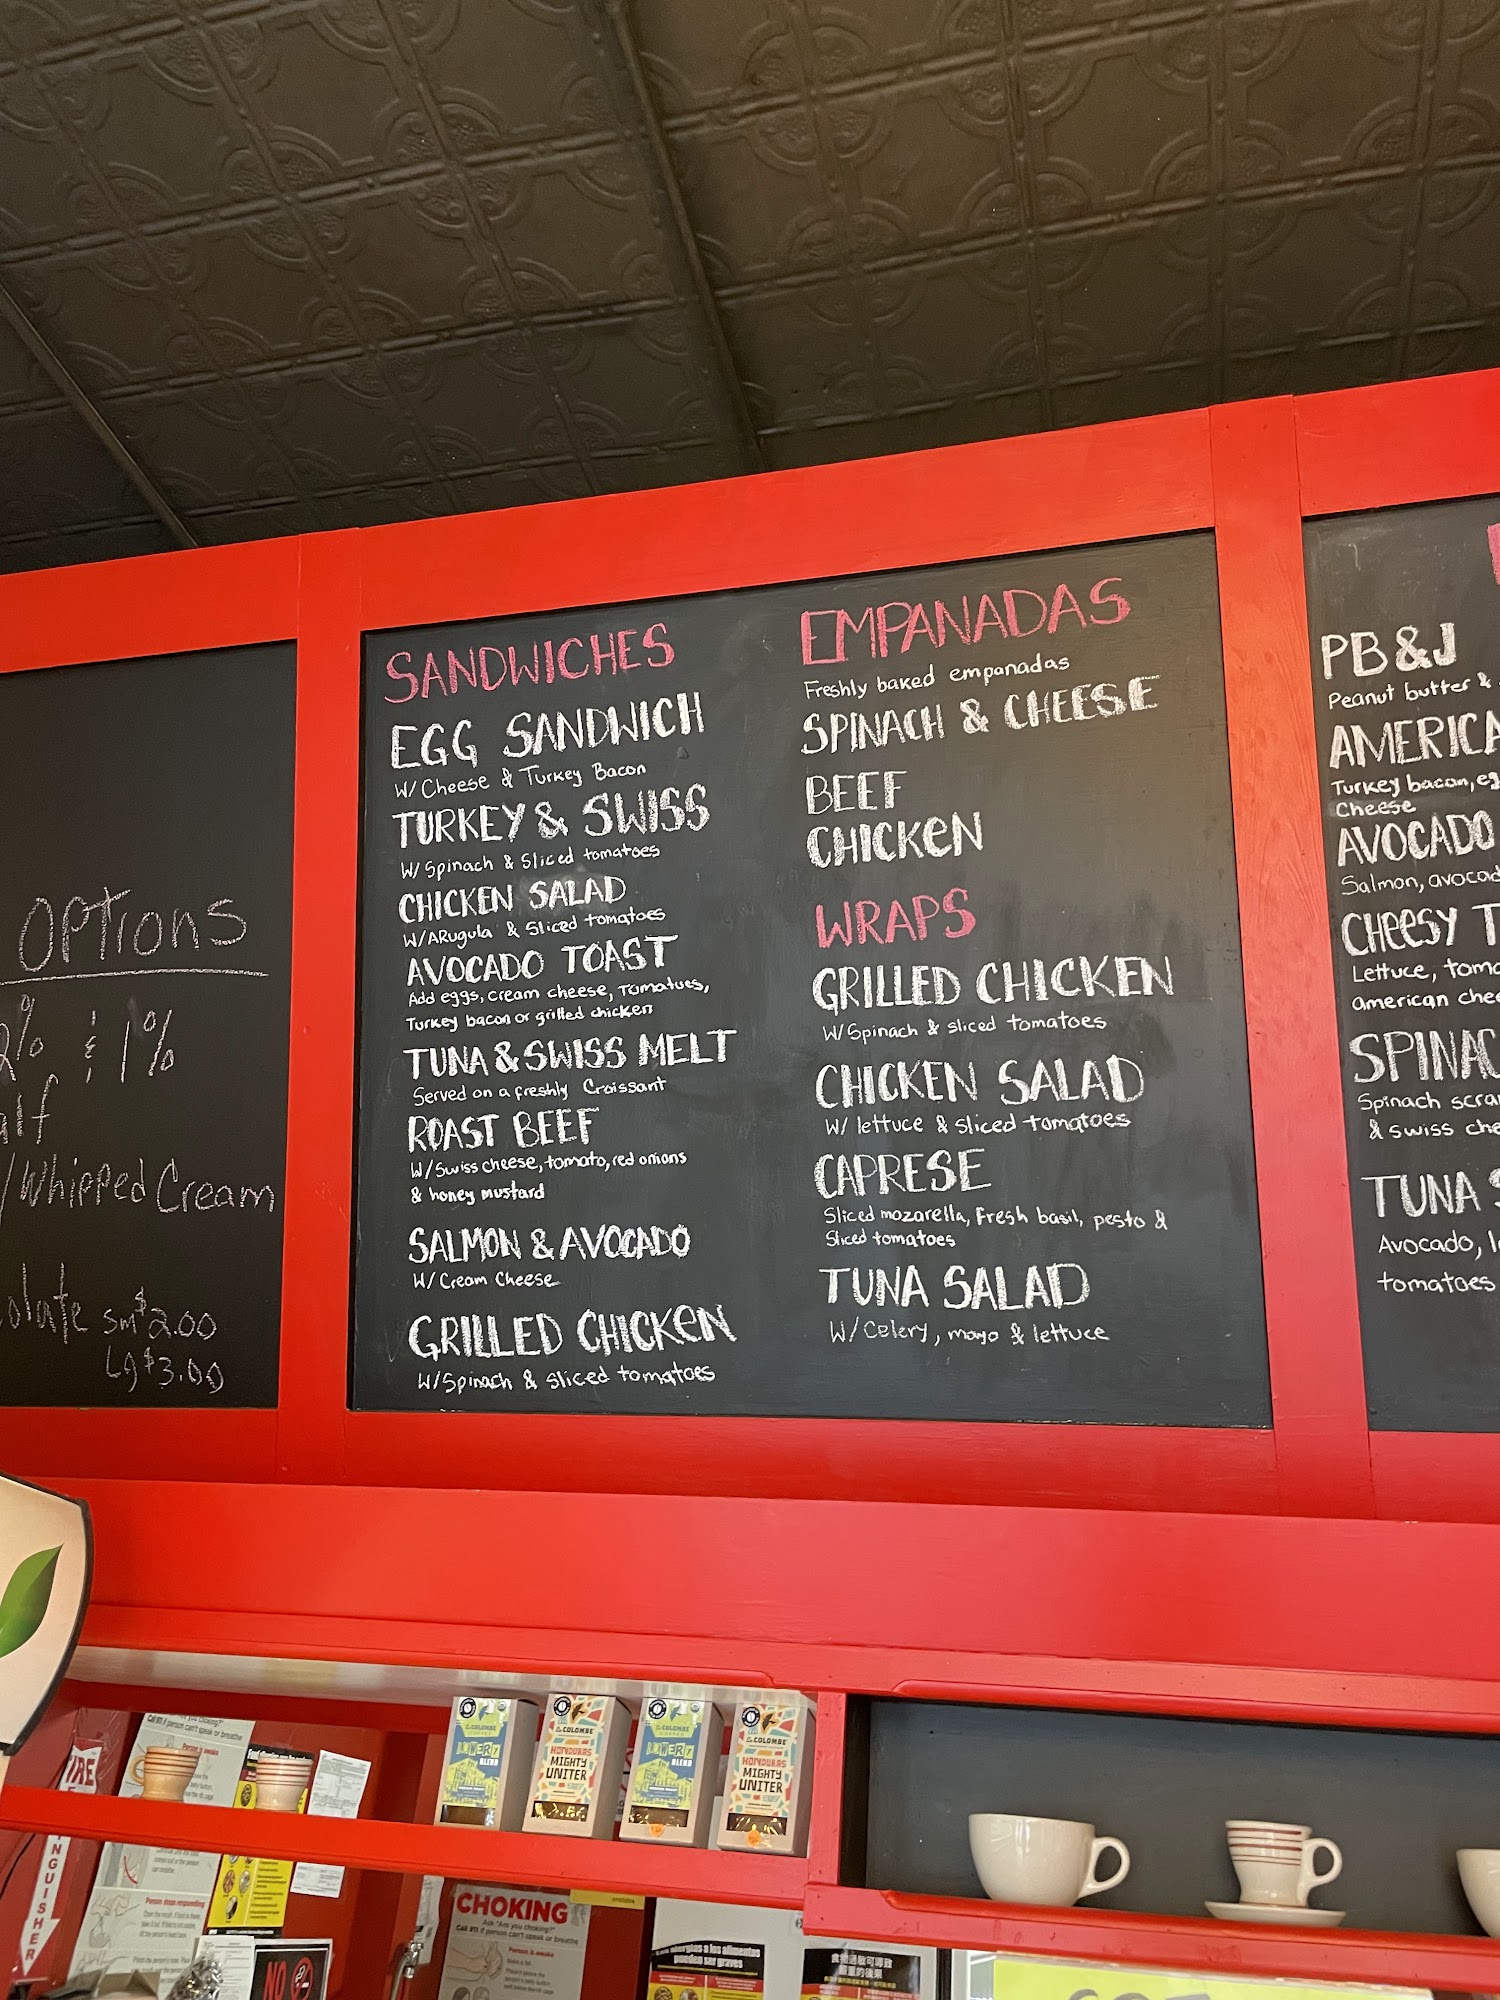 OPTIONS
2% & 1%
W/Whipped Cream
SM $2.00
LG $3.00
SANDWICHES
EGG SANDWICH
W/Cheese & Turkey Bacon
TURKEY & SWISS
W/Spinach & Sliced tomatoes
CHICKEN SALAD
W/ARugula & Sliced tomatoes
AVOCADO TOAST
Add eggs, cream cheese, Tomatoes,
Turkey bacon or grilled chicken
TUNA & SWISS MELT
Served on a freshly Croissant
ROAST BEEF
W/Swiss cheese, tomato, red onions
& honey mustard
SALMON & AVOCADO
W/ Cream Cheese
GRILLED CHICKEN
W/Spinach & Sliced tomatoes
EMPANADAS
Freshly baked empanadas
SPINACH & CHEESE
BEEF
CHICKEN
WRAPS
GRILLED CHICKEN
W/Spinach & sliced tomatoes
CHICKEN SALAD
W/ lettuce & Sliced tomatoes
CAPRESE
Sliced mozarella, Fresh basil, pesto &
Sliced tomatoes
TUNA SALAD
W/Celery, mayo & lettuce
PB&J
Peanut butter &
AMERICA
Turkey bacon, eg
Cheese
AVOCADO
Salmon, avocad
CHEESY T
Lettuce, toma
american chee
SPINAC
Spinach scra
& swiss che
TUNA S
Avocado, l
tomatoes
La COLOMBE
BLEND
La COLOMBE
HONDURAS
MIGHTY
UNITER
La COLOMBE
BLEND
La COLOMBE
HONDURAS
MIGHTY
UNITER
CHOKING
Ask "Are you choking?"
Call 911 if person can't speak or breathe
Person is awake
NGUISHER
NO